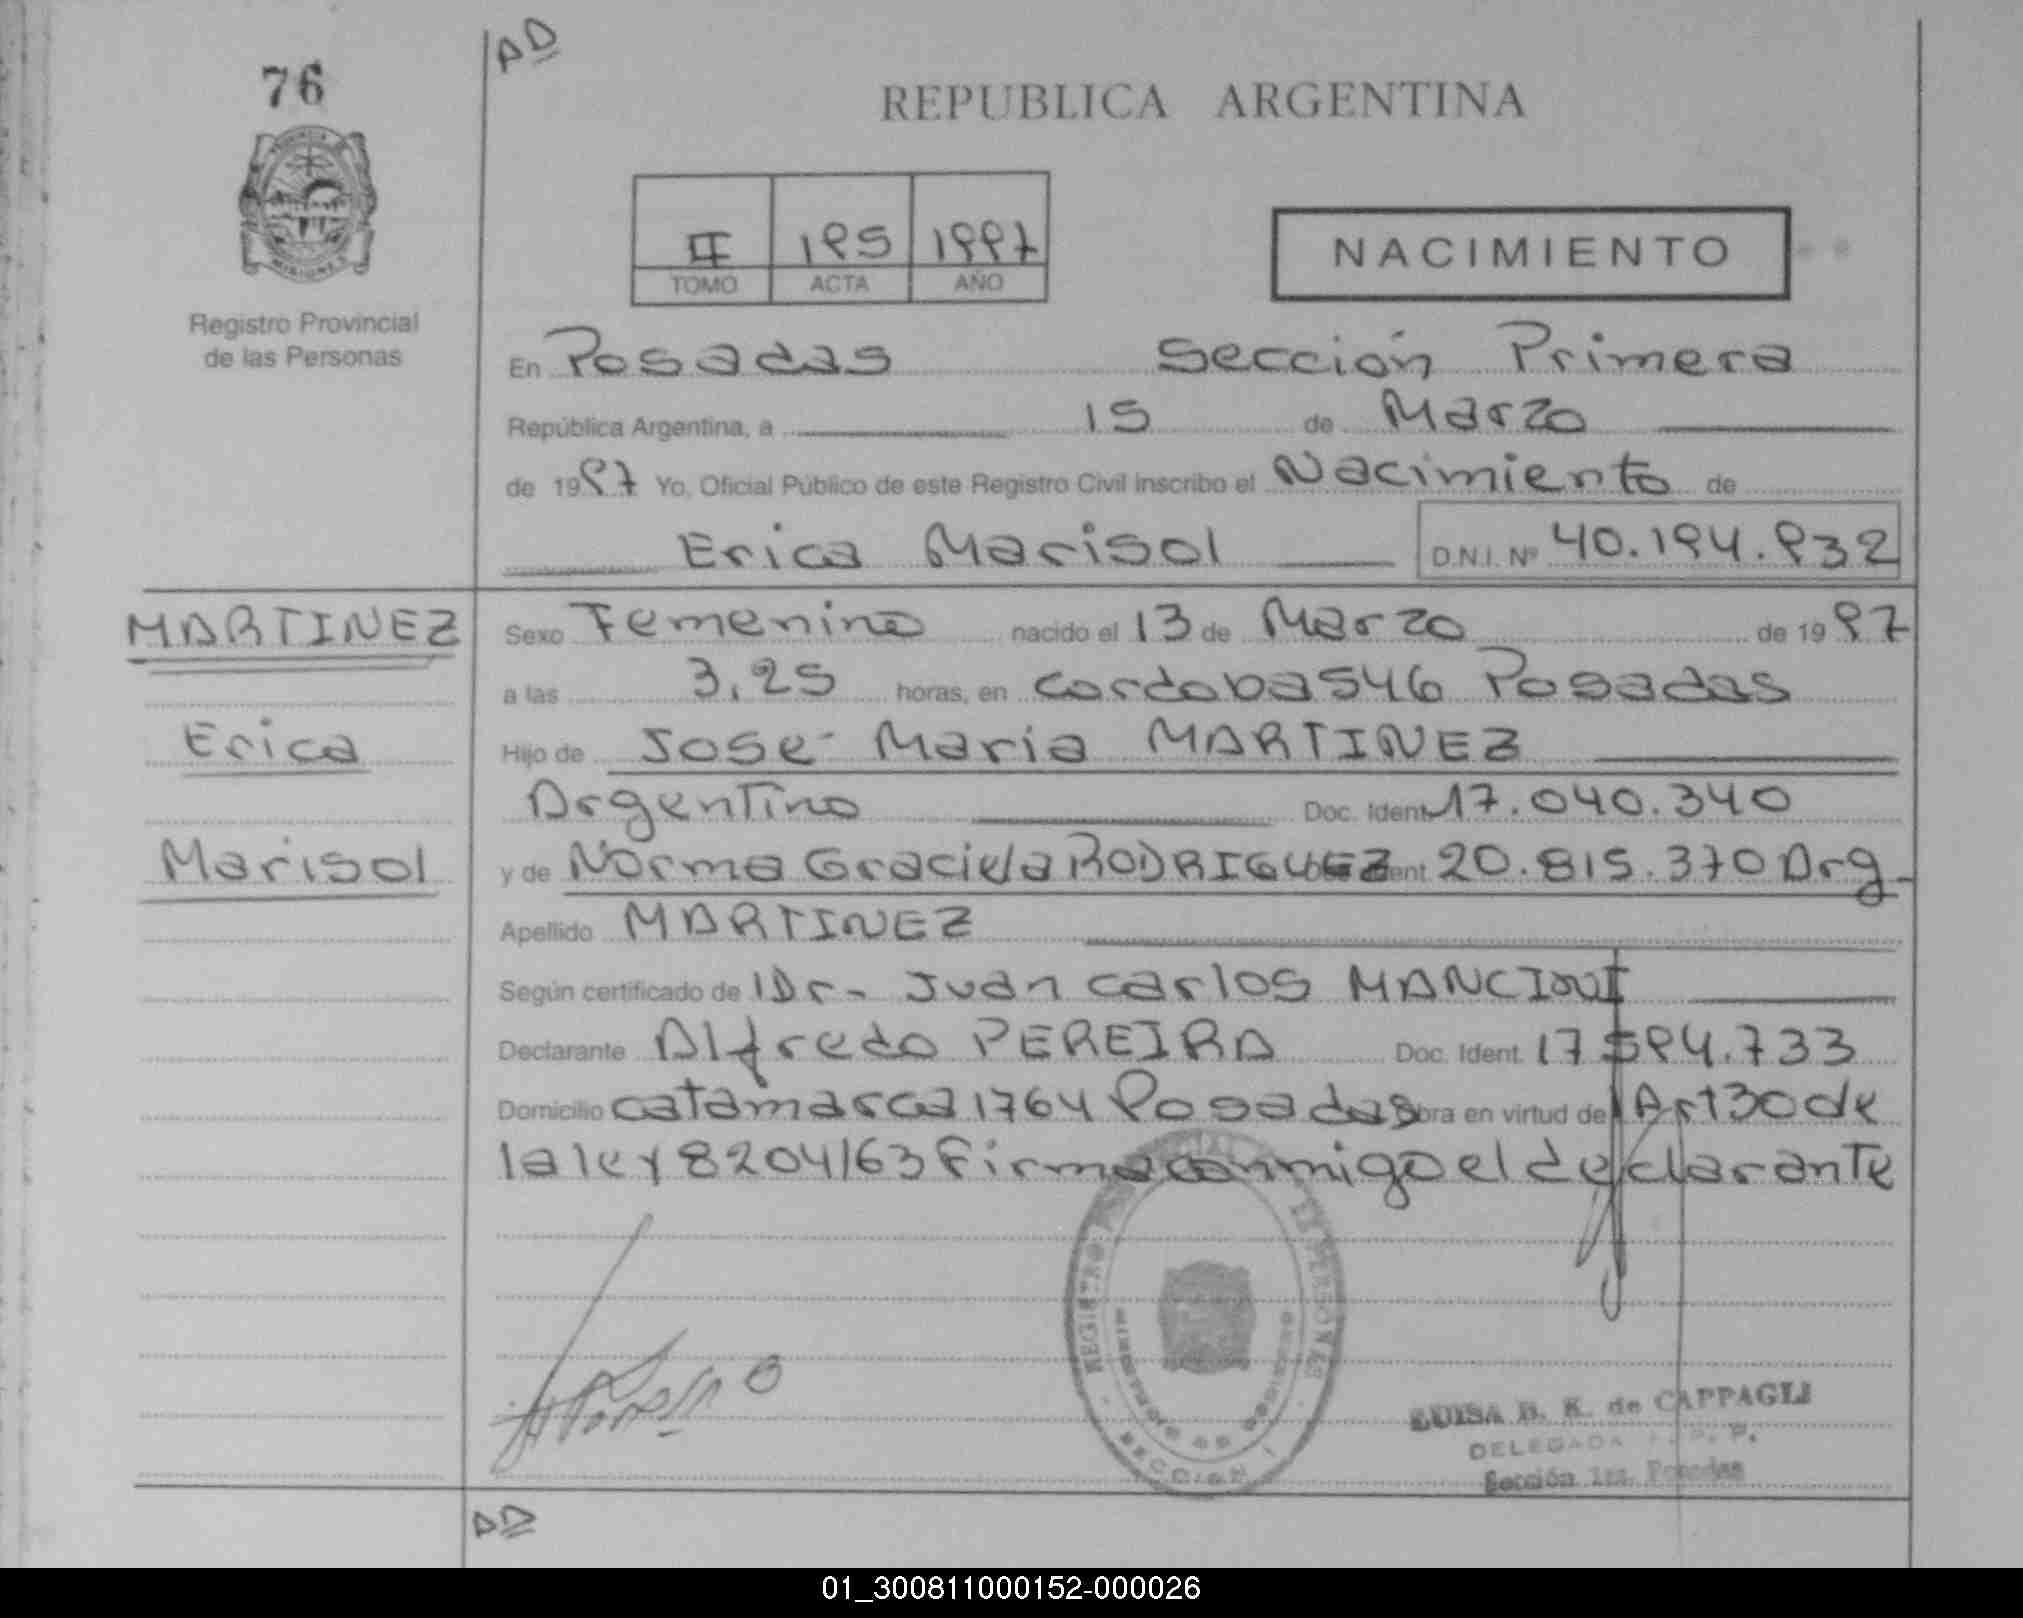 AD
76
REPUBLICA ARGENTINA
II 195 1997
TOMO ACTA AÑO
NACIMIENTO
MISIONES
Registro Provincial
de las Personas
En Posadas Sección Primera
República Argentina, a 15 de Marzo
de 1997 Yo, Oficial Público de este Registro Civil inscribo el Nacimiento de
Erica Marisol D.N.I. Nº 40.194.932
MARTINEZ
Erica
Marisol
Sexo Femenino nacido el 13 de Marzo de 1997
a las 3,25 horas, en Cordoba 546 Posadas
Hijo de Jose Maria MARTINEZ
Argentino Doc. Ident. 17.040.340
y de Norma Graciela RODRIGUEZ ent. 20.815.370 Arg.
Apellido MARTINEZ
Según certificado de Dr. Juan Carlos MANCINI
Declarante Alfredo PEREIRA Doc. Ident. 17.594.733
Domicilio Catamarca 1764 Posadas obra en virtud de Art 30 de
la ley 8204/63 Firma conmigo el declarante
REGISTRO PERSONAS
SECCION I
LUISA B. K. de CAPPAGLI
DELEGADA R. P. P.
Sección 1ra. Posadas
AD
01_300811000152-000026